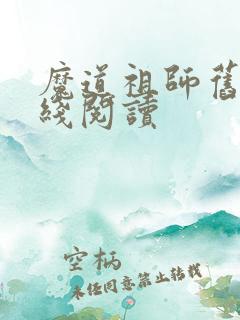 魔道祖師舊
綫閱讀
空柄
未任同意禁止转载